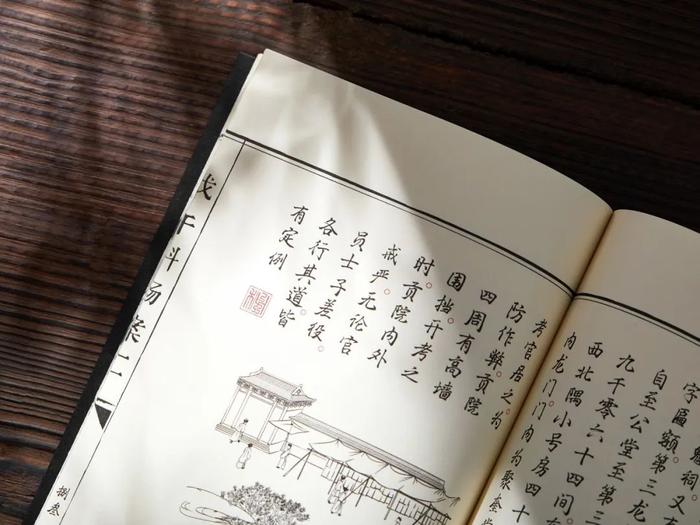 字匾额。第三龙
自至公堂至第三
九千零六十四间
西北隅小号房四十
内龙门。门内为聚奎
考官居之。为
防作弊。贡院
四周有高墙
围挡。开考之
时。贡院内外
戒严。无论官
员士子差役。
各行其道。皆
有定例
戊午科场案二
捌叁